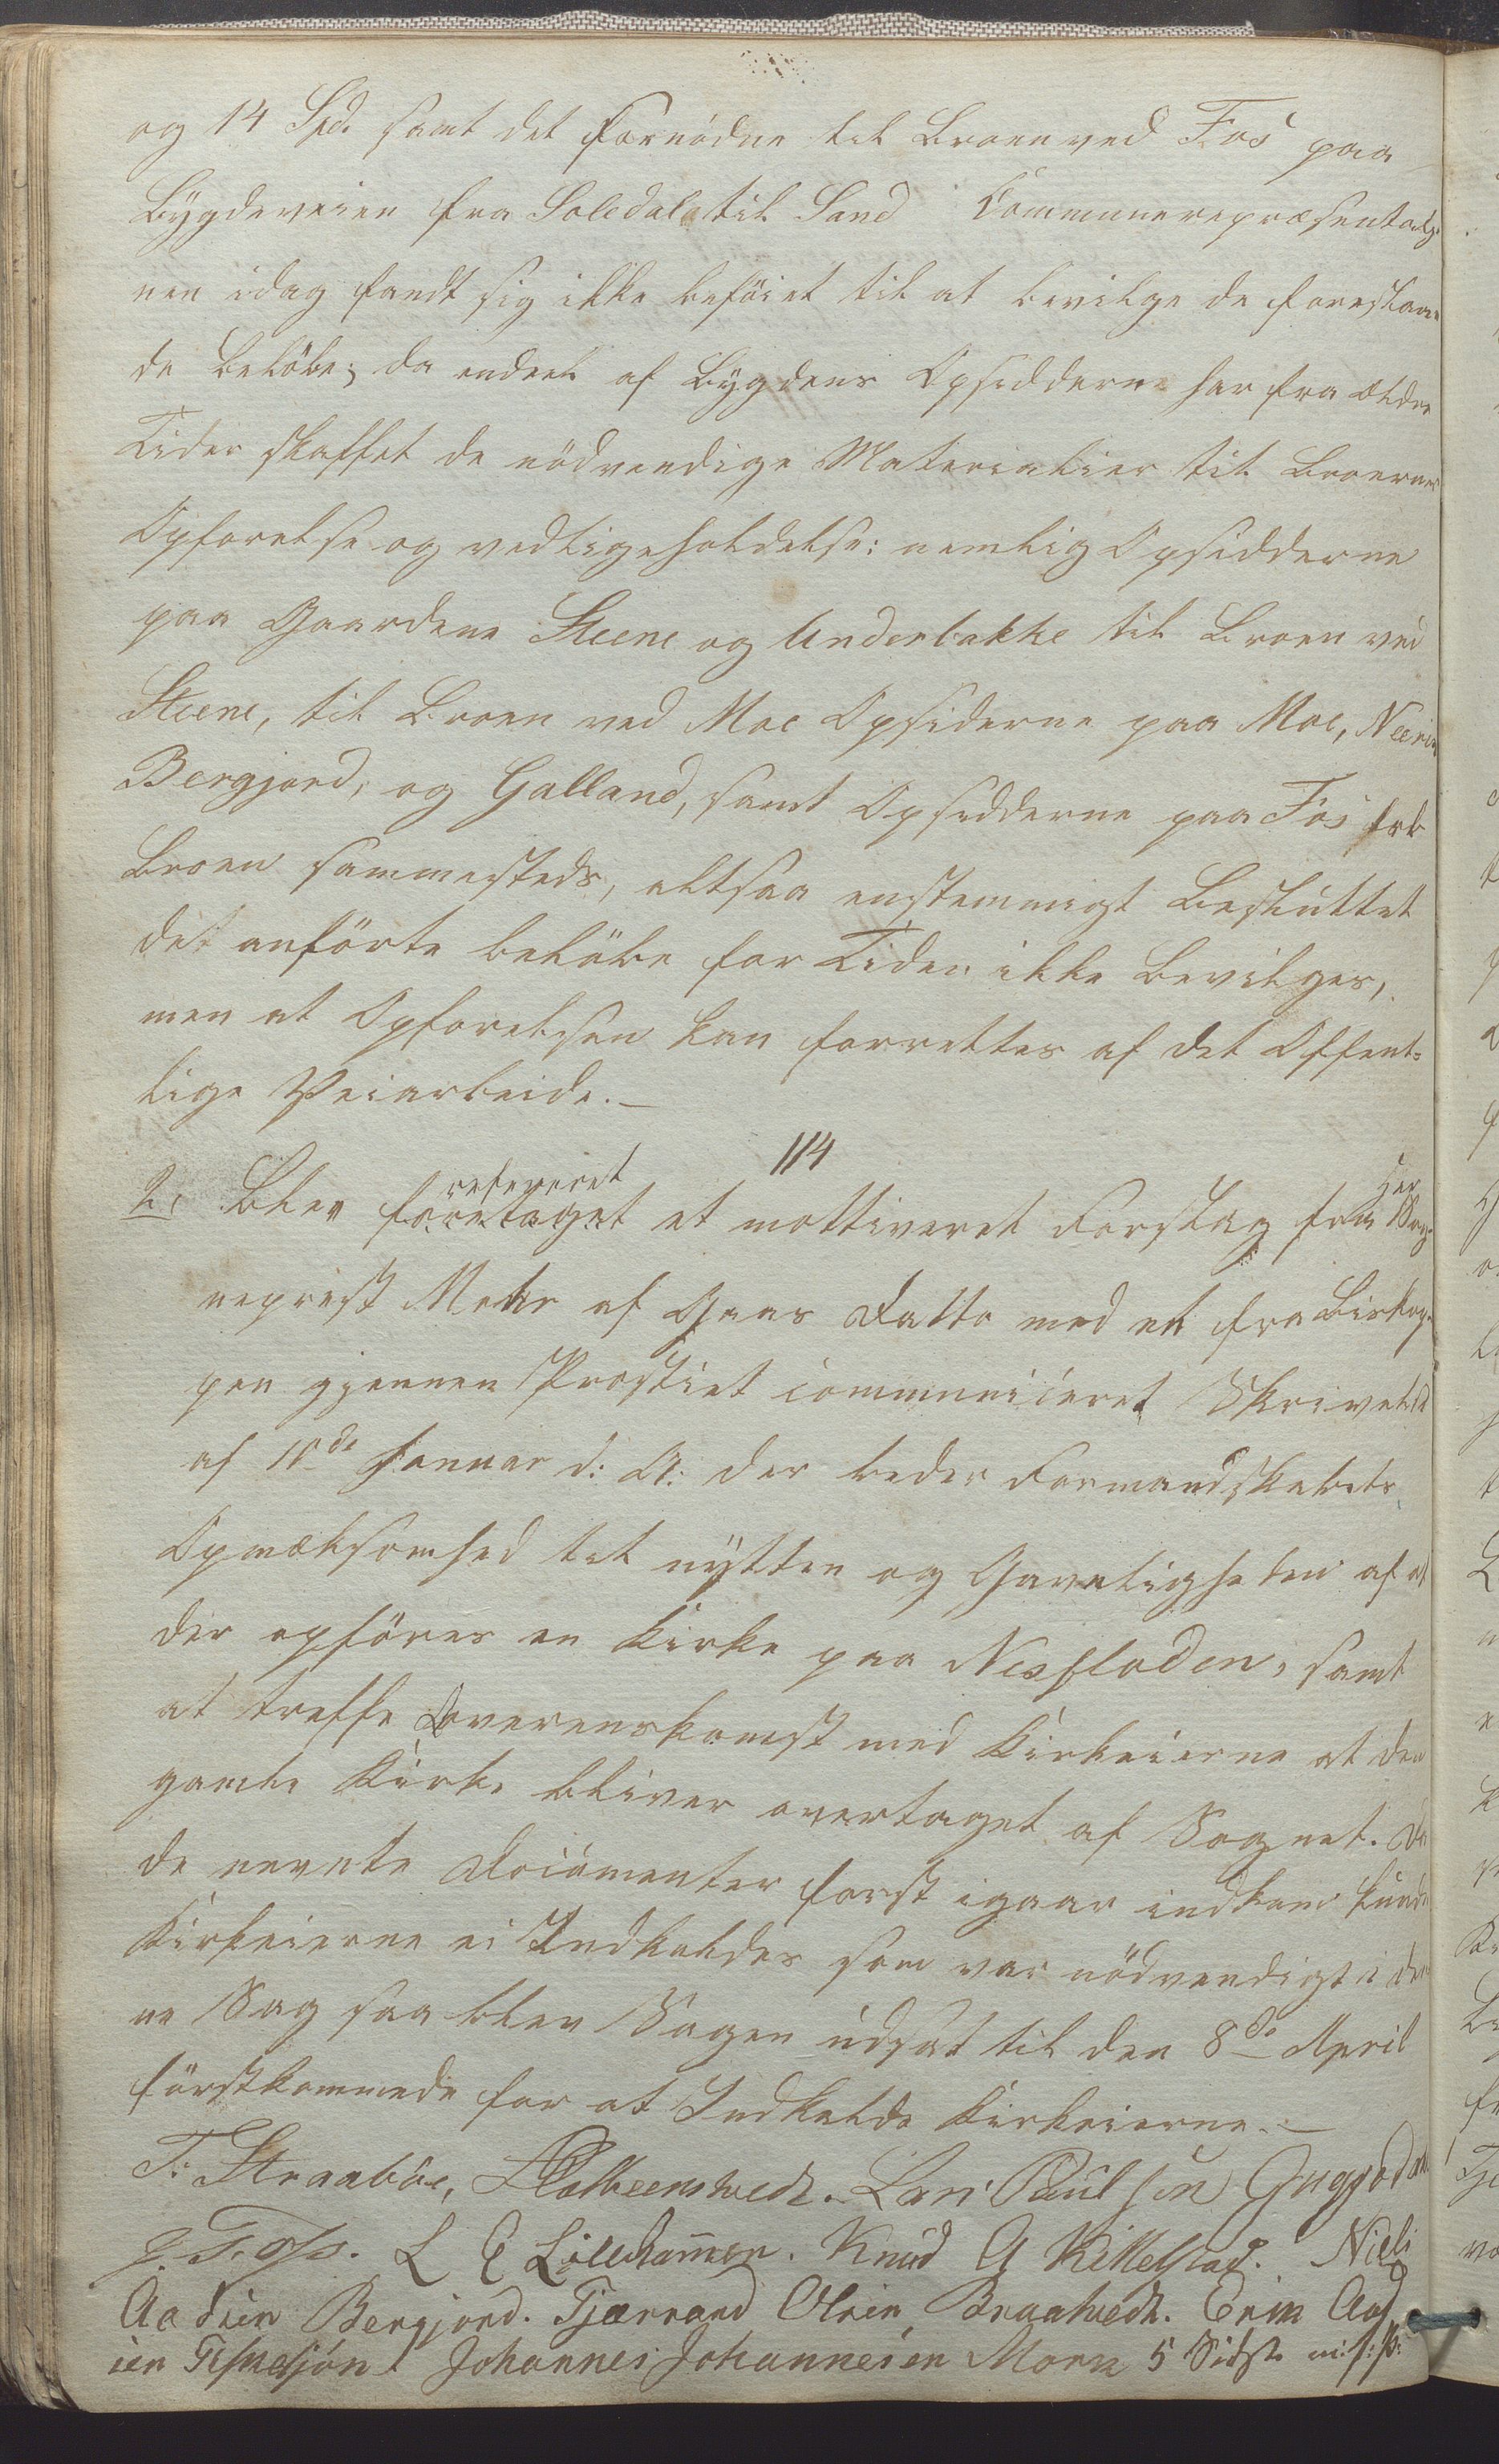 og 14 Spd. samt det fornödne til Broen ved Fos paa
Bygdeveien fra Soledale til Sand Communerepræsentatio-
nen idag fandt sig ikke beföiet til at bevilge de foreslaae-
de Belöbe; da endeel af Bygdens Opsiddere har fra ældre
Tider skaffet de nödvendige Materialier til Broernes
Opförelse og vedligeholdelse: nemlig Opsidderne
paa Gaardene Steene og Underbakke til Broen ved
Steene, til Broen ved Moe Opsiderne paa Moe, Neerim
Bergjord, og Galland, samt Opsidderne paa Fos til
Broen sammesteds, altsaa enstemmigt Besluttet
det anförte belöbe for Tiden ikke Bevilges,
men at Opförelsen kan forrettes af det Offent-
lige Veiarbeide.
114
2, Blev foretaget refereret et mottiveret Forslag fra Her Sog-
neprest Mohr af Gaars Datto med et fra Biskop-
pen gjennem Prostiet communiceret Skrivelse
af 18de Januar d: A: der leder Formandskabets
Opmærksomhed til nytten og Gavnligheden af at
der opföres en Kirke paa Nesfloden, samt
at treffe Overenskomst med Kirkeierne at den
gamle Kirke bliver overtaget af Sognet. Da
de nevnte Documenter först igaar indkom kunde
Kirkeierne ei Indkaldes som var nödvendigt i den-
ne Sag saa blev Sagen udsat til den 8de April
förstkommende for at Indkalde Kirkeierne.
T: Straaböe, Lars Paulsen Guggedal
T. Foss. L E Lillehammer. Knud A Kittelstad. Niels
Aadsen Bergjord. Tjærrand Olsen Braatvedt. Erik Aad
sen Johannes Johannesen Moen 5 Sidste m: f: P: